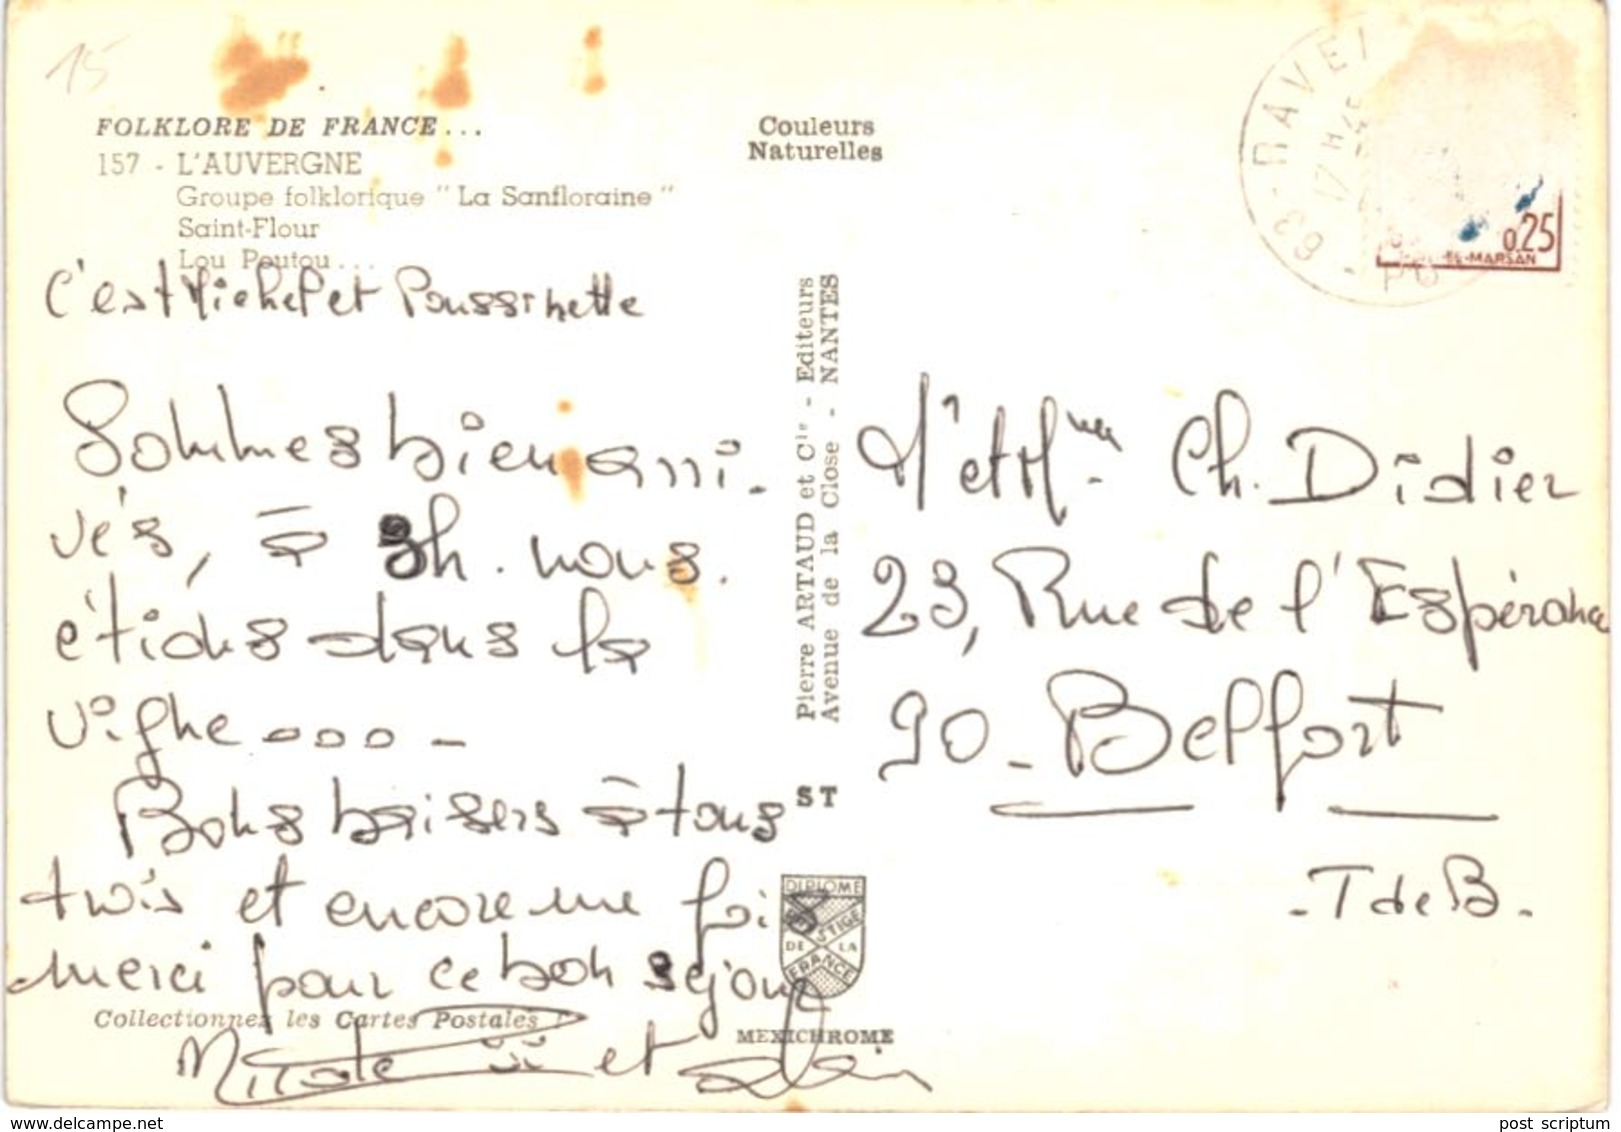 15
FOLKLORE DE FRANCE...
157 - L'AUVERGNE
Groupe folklorique " La Sanfloraine "
Saint-Flour
Lou Poutou...
Couleurs
Naturelles
63 - RAVE
17 H 45
0,25
-DE-MARSAN
C'est Michel et Poussinette
Sommes bien arri-
vés, à 3h. nous
étions dans la
vigne ooo -
Bons baisers à tous
trois et encore une fois
merci pour ce bon séjour
et Alain
Pierre ARTAUD et Cie - Editeurs
Avenue de la Close - NANTES
ST
DIPLOME
PRESTIGE
DE LA
FRANCE
MEXICHROME
Collectionnez les Cartes Postales !
M' et Mme Ch. Didier
23, Rue de l'Espérance
90 - Belfort
- T de B -
www.delcampe.net
post scriptum